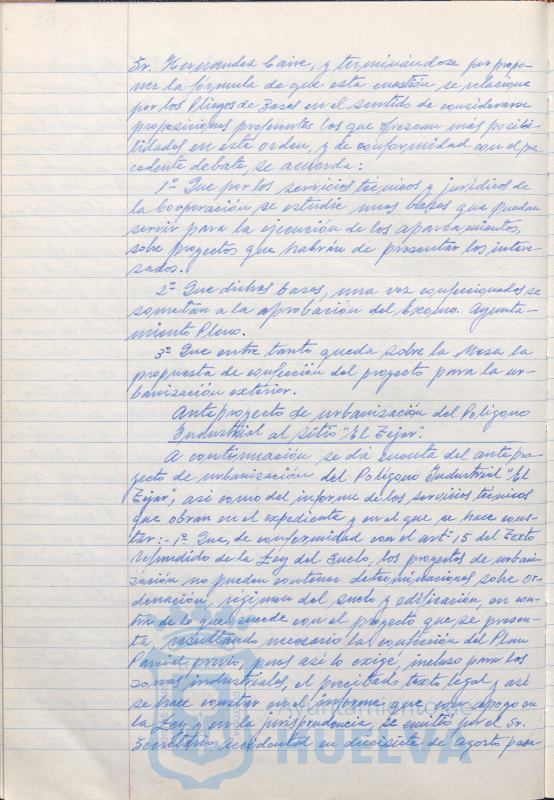 Sr. Hernandez Caire, y terminándose por propo-
ner la fórmula de que esta cuestión se relacione
por los Pliegos de Bases en el sentido de considerarse
proposiciones preferentes los que ofrezcan más posibi-
lidades en este orden, y de conformidad con el pre-
cedente debate, se acuerda:
1º Que por los servicios técnicos y jurídicos de
la Corporación se estudie unas bases que puedan
servir para la ejecución de los aparcamientos,
sobre proyectos que habrán de presentar los intere-
sados.
2º Que dichas bases, una vez confeccionadas se
sometan a la aprobación del Excmo. Ayunta-
miento Pleno.
3º Que entre tanto queda sobre la Mesa la
propuesta de confección del proyecto para la ur-
banización exterior.
Anteproyecto de urbanización del Polígono
Industrial al sitio "El Tejar".
A continuación se dá cuenta del antepro-
yecto de urbanización del Polígono Industrial "El
Tejar", asi como del informe de los servicios técnicos
que obran en el expediente y en el que se hace cons-
tar:- 1º Que, de conformidad con el artº 15 del Texto
Refundido de la Ley del Suelo, los proyectos de urbani-
zación no pueden contener determinaciones sobre or-
denación, régimen del suelo y edificación, en con-
tra de lo que sucede con el proyecto que se presen-
ta, resultando necesario la confección del Plan
Parcial previo, pues así lo exige, incluso para las
zonas industriales, el precitado texto legal y asi
se hace constar en el informe que, con apoyo en
la Ley y en la jurisprudencia, se emitió por el Sr.
Secretario Accidental en diecisiete de Agosto pasa-
Ayuntamiento de
HUELVA